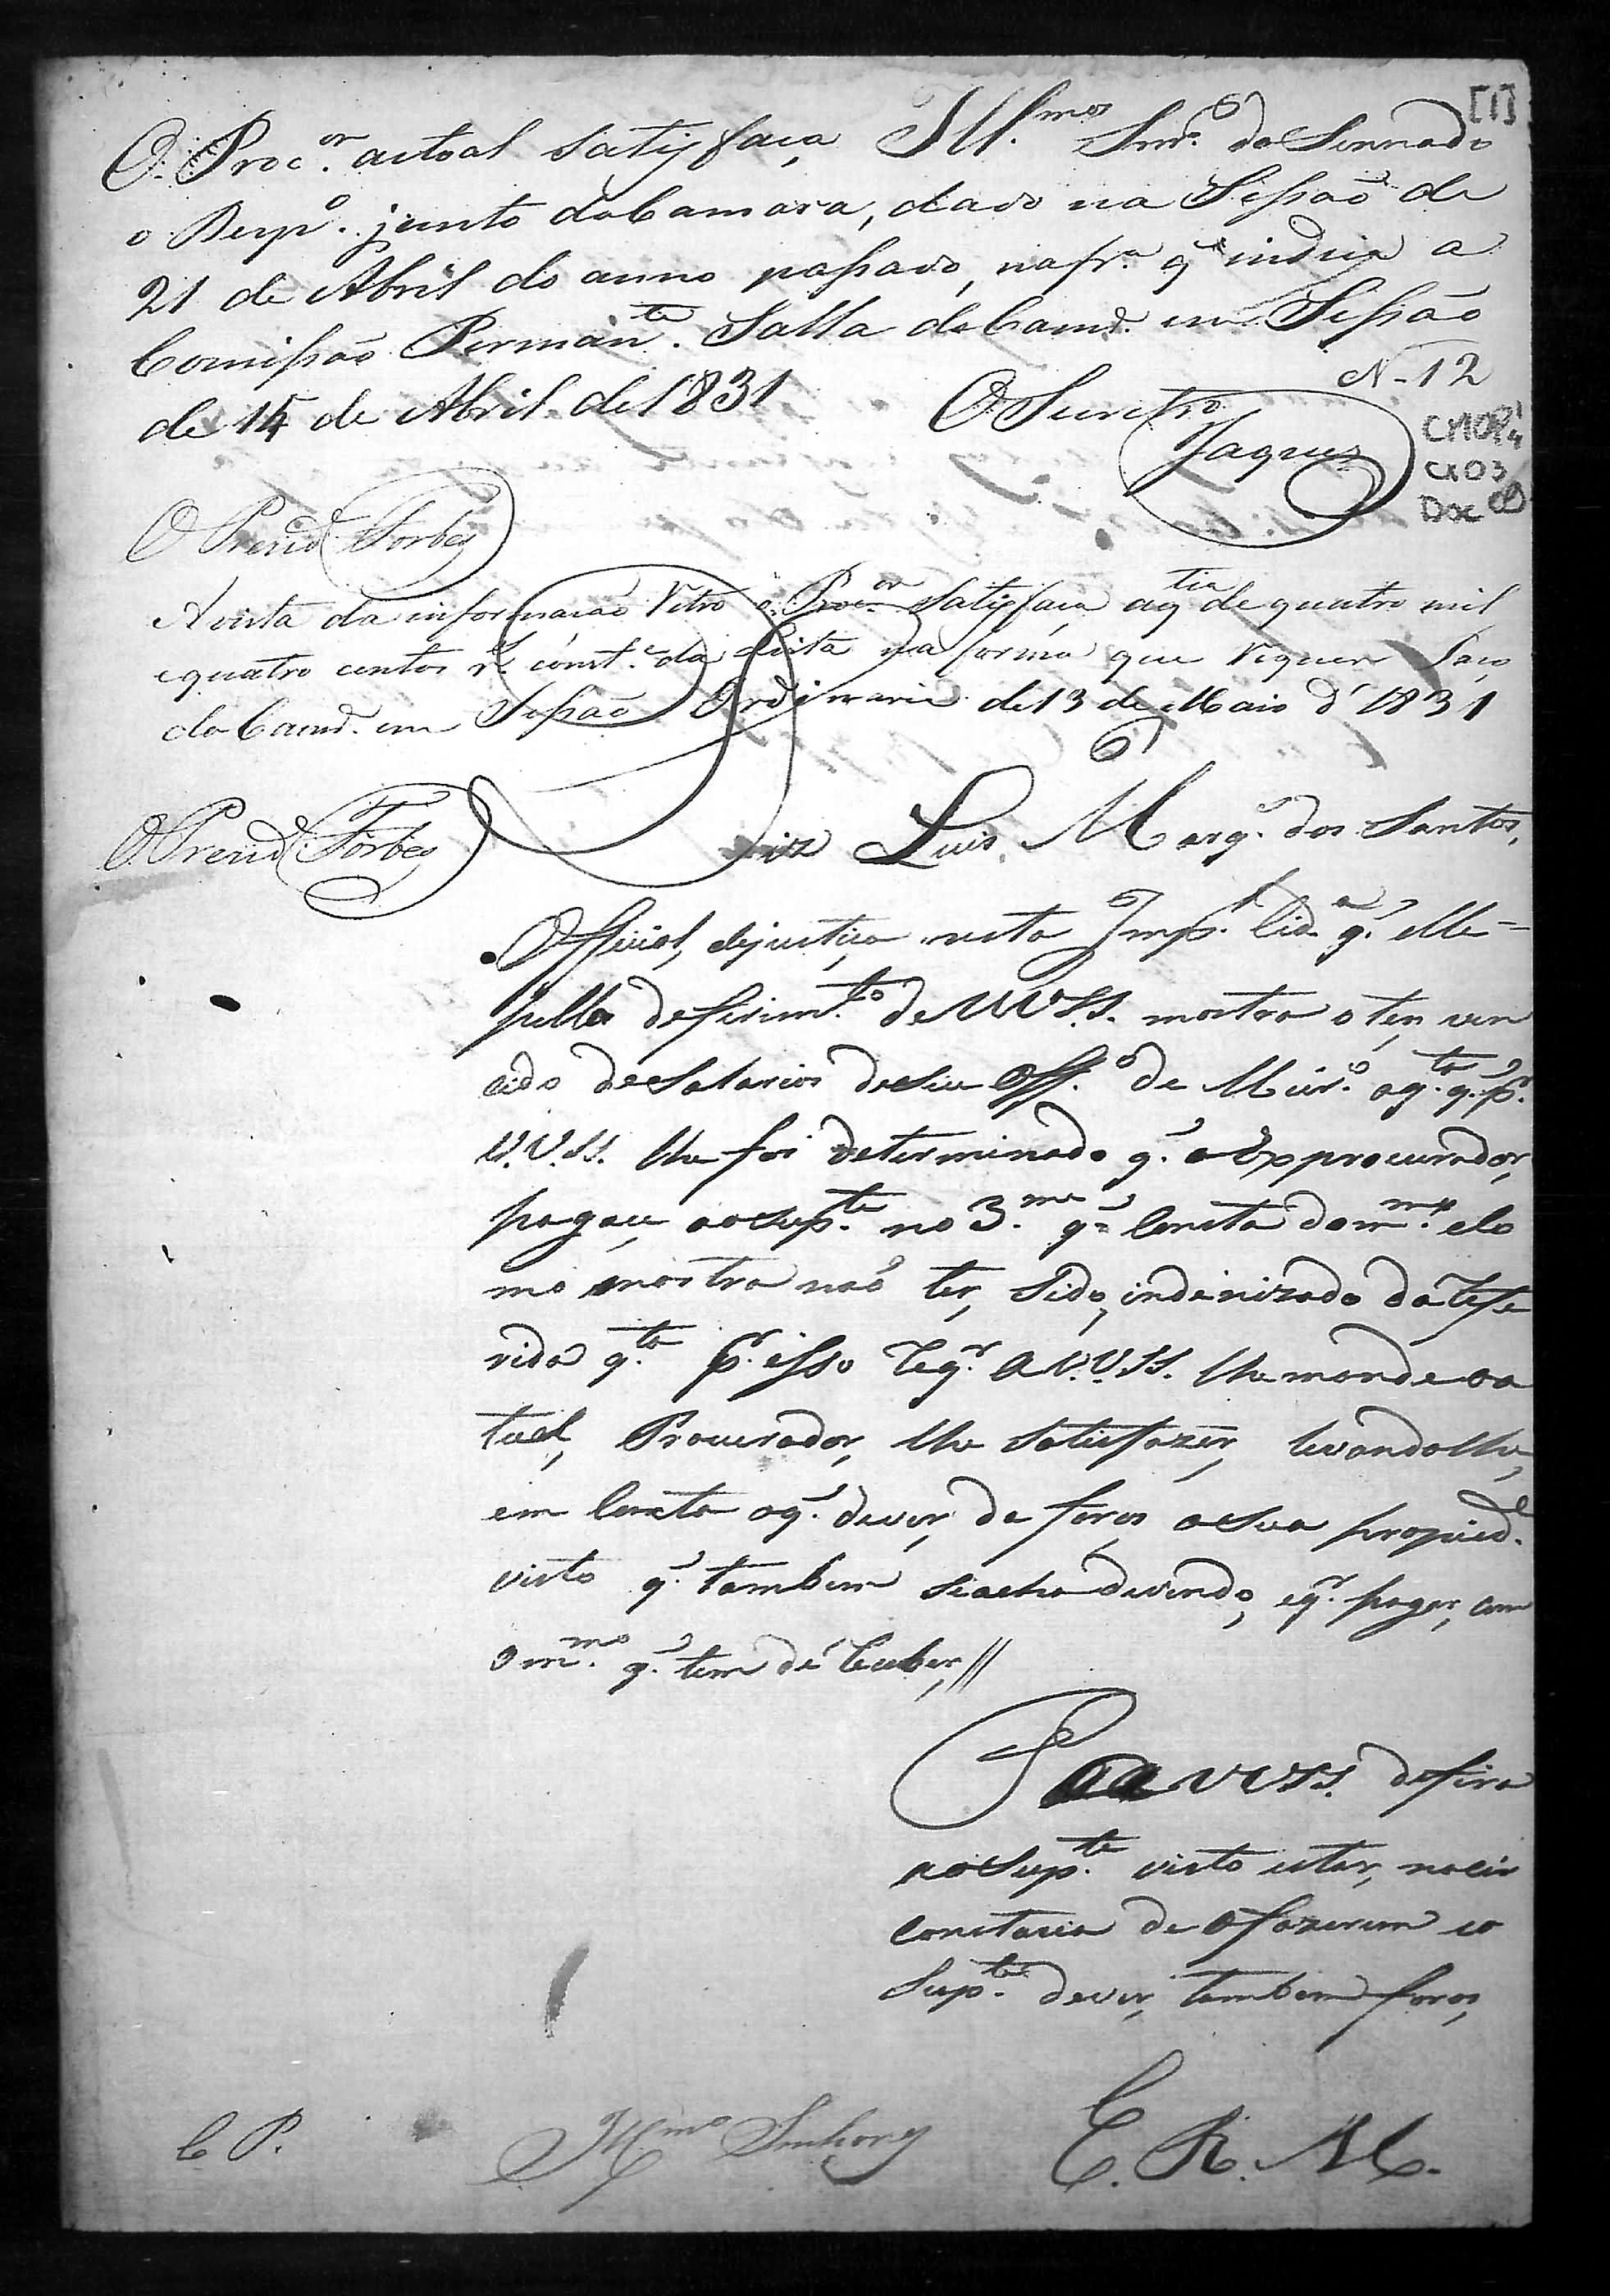 [1]
O Proc.or actual satisfaça Ill.mos Snr.es do Sennado
o Desp.o junto da Camara, dado na Sessaõ de
21 de Abril do anno passado, na fr.a q indica a
Comissaõ Perman.te Salla da Camr.a em Sessaõ
de 15 de Abril de 1831
N. 12
O Secretr.o
Jaques
CMOP
CX 03
Doc
O Prezid.e Forbes
A vista da informacaõ retro o Proc.or satisfaça a q.tia de quatro mil
e quatro centos r.s const.e da dita na forma que requer Paço
da Camr.a em Sessaõ Ordinaria de 13 de Maio d' 1831
O Prezid.e Forbes
Diz Luis Marq.s dos Santos,
Official, de justiça nesta Imp.l Cid.e q. elle
pello deferim.to de VVSS. mostra o ter, ven
cido de salarios de seu Off.o de Miir.o a q.tia q. p.r
V.V.SS. lhe foi determinado q. o Exprocurador,
pagace ao Sup.te no 3.mo q. consta do m.mo e co
mo mostra naõ ter, sido, indenizado da refe
rida q.tia p.r isso req.r a V.V.SS. lhe mande o a
tual, Procurador, lhe satisfazer, levandolhe,
em Conta o q. dever, de foros a sua propied.e
visto q. tambem se acha devendo, e q.r pagar, com
o m.mo q. tem de receber, //
P. a VVSS. defira
ao Sup.te visto estar, na cir
constacia de o fazerem e o
Sup.te dever, tambem foros,
C P.
Ill.mos Senhores
E. R. M.